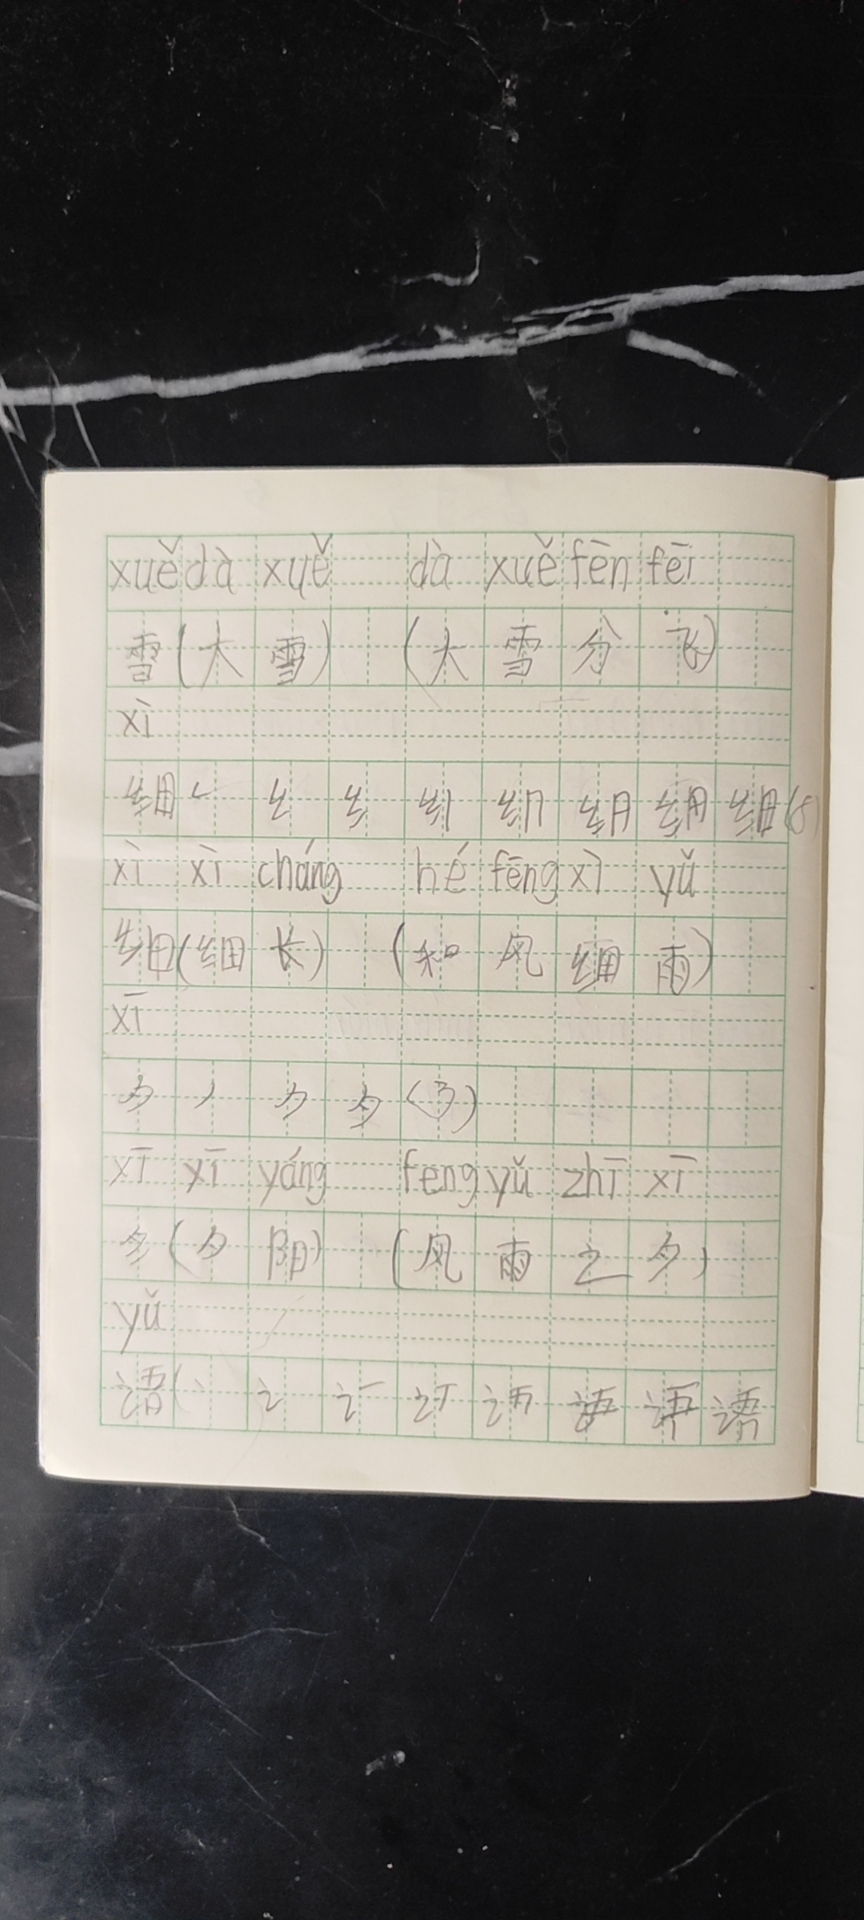 xuě dà xuě dà xuě fēn fēi
雪(大雪) (大雪分飞)
xì
细 纟 细(8)
xì xì cháng hé fēng xì yǔ
细(细长) (和风细雨)
xī
夕 丿 夕(3)
xī yī yáng feng yǔ zhī xī
夕(夕阳) (风雨之夕)
yǔ
语( 讠 语